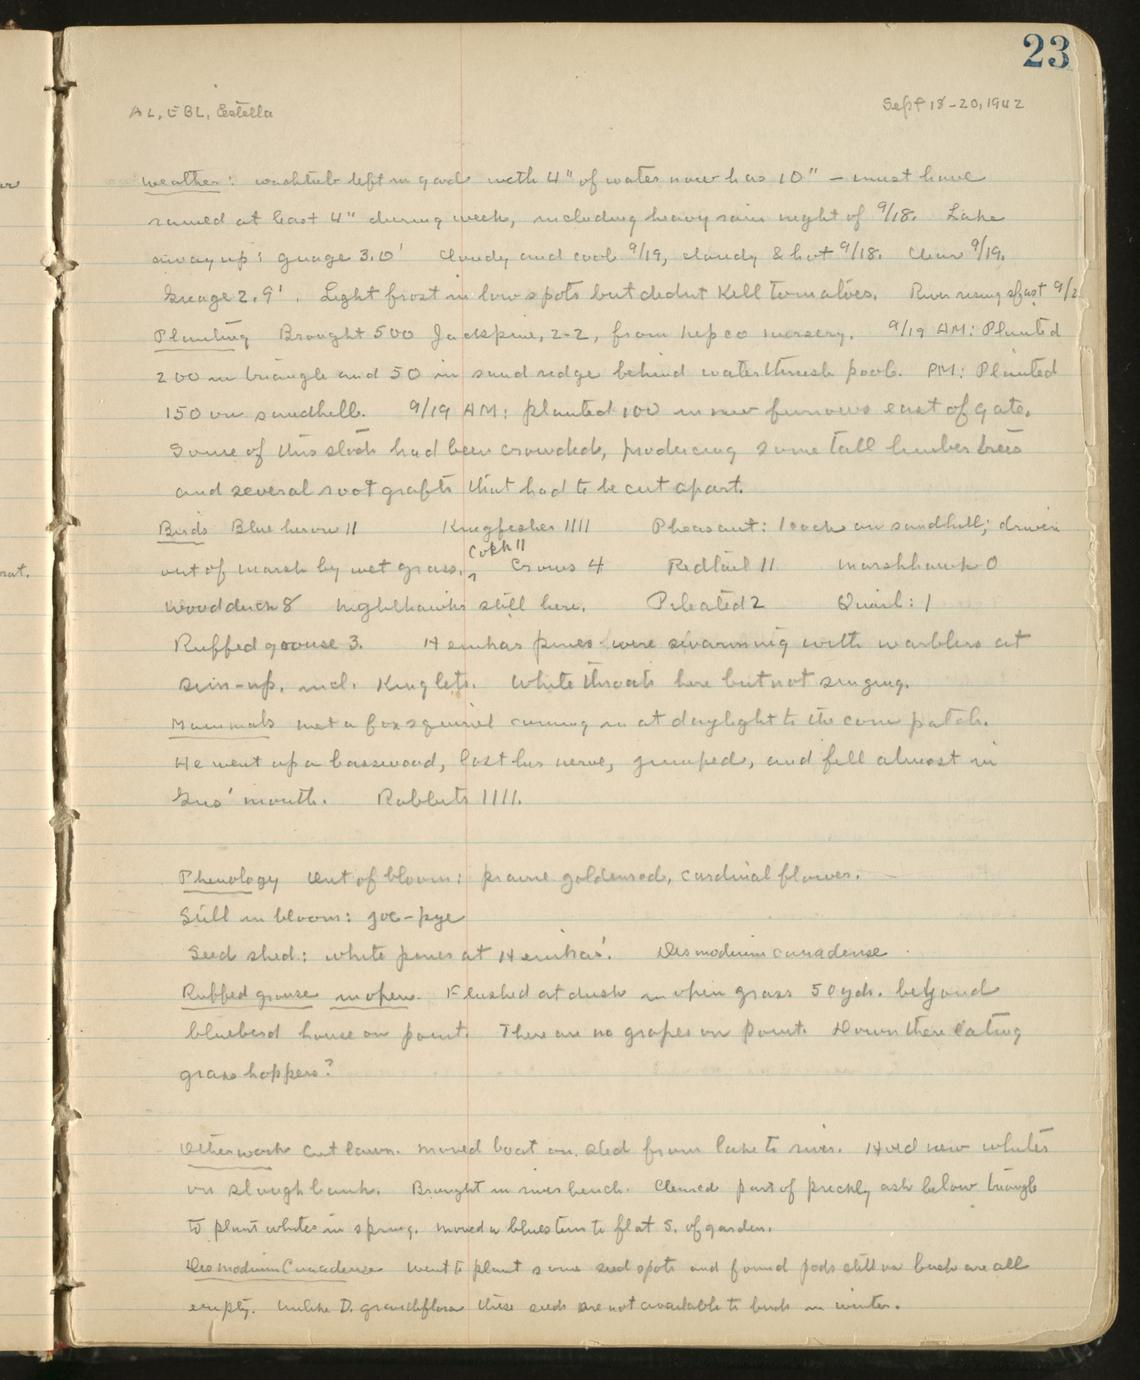 23
AL, EBL, Estella Sept 18-20, 1942
Weather: washtub left in yard with 4" of water now has 10" – must have
rained at least 4" during week, including heavy rain night of 9/18. Lake
away up; guage 3.0' Cloudy and cool 9/19, cloudy & hot 9/18. Clear 9/19.
Guage 2.9'. Light frost in low spots but didnt kill tomatoes. River rising fast
Planting Brought 500 Jackpine, 2-2, from Nepco nursery. 9/19 AM: Planted
200 in triangle and 50 in sand ridge behind waterthrush pool. PM: Planted
150 on sandhill. 9/19 AM: planted 100 in new furrows east of gate.
Some of this stock had been crowded, producing some tall limber trees
and several root grafts that had to be cut apart.
Birds Blue heron 11 Kingfisher 1111 Pheasant: 1 cock on sandhill; driven
out of marsh by wet grass. Crows 4 Redtail 11 Marshhawk 0
Woodduck 8 Nighthawks still here. Pileated 2 Quail: 1
Ruffed grouse 3. Hemkas pines were swarming with warblers at
sun-up, incl. Kinglets. Whitethroats here but not singing.
Mammals Met a fox squirrel coming in at daylight to the corn patch.
He went up a basswood, lost his nerve, jumped, and fell almost in
Gus' mouth. Rabbits 1111.
Phenology Out of bloom: prairie goldenrod, cardinal flower.
Still in bloom: joe-pye
Seed shed: white pines at Hemkas'. Desmodium canadense
Ruffed grouse in open. Flushed at dusk in open grass 50 yds. beyond
bluebird house on point. There are no grapes on point. Down there eating
grasshoppers?
Other work Cut lawn. Moved boat on sled from lake to river. Hoed new whites
on slough bank. Brought in river bench. Cleared part of prickly ash below triangle
to plant whites in spring. Moved a bluestem to flat S. of garden.
Desmodium Canadense Went to plant some seed spots and found pods still on bush are all
empty. Unlike D. grandiflora these seeds are not available to birds in winter.